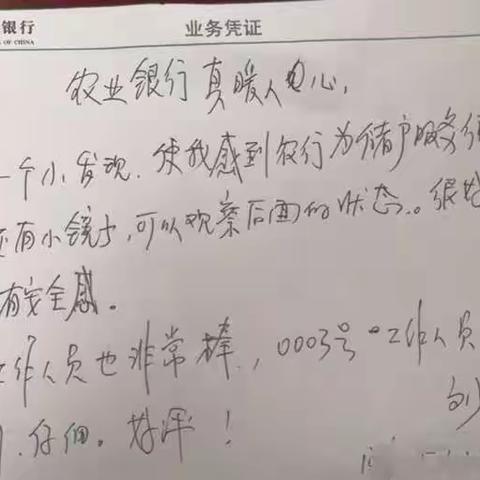 银行 业务凭证
OF CHINA
农业银行真暖人心,
一个小发现.使我感到农行为储户服务
还有小镜子,可以观察后面的状态。很
有安全感。
工作人员也非常棒,0003号工作人员
仔细。好评!